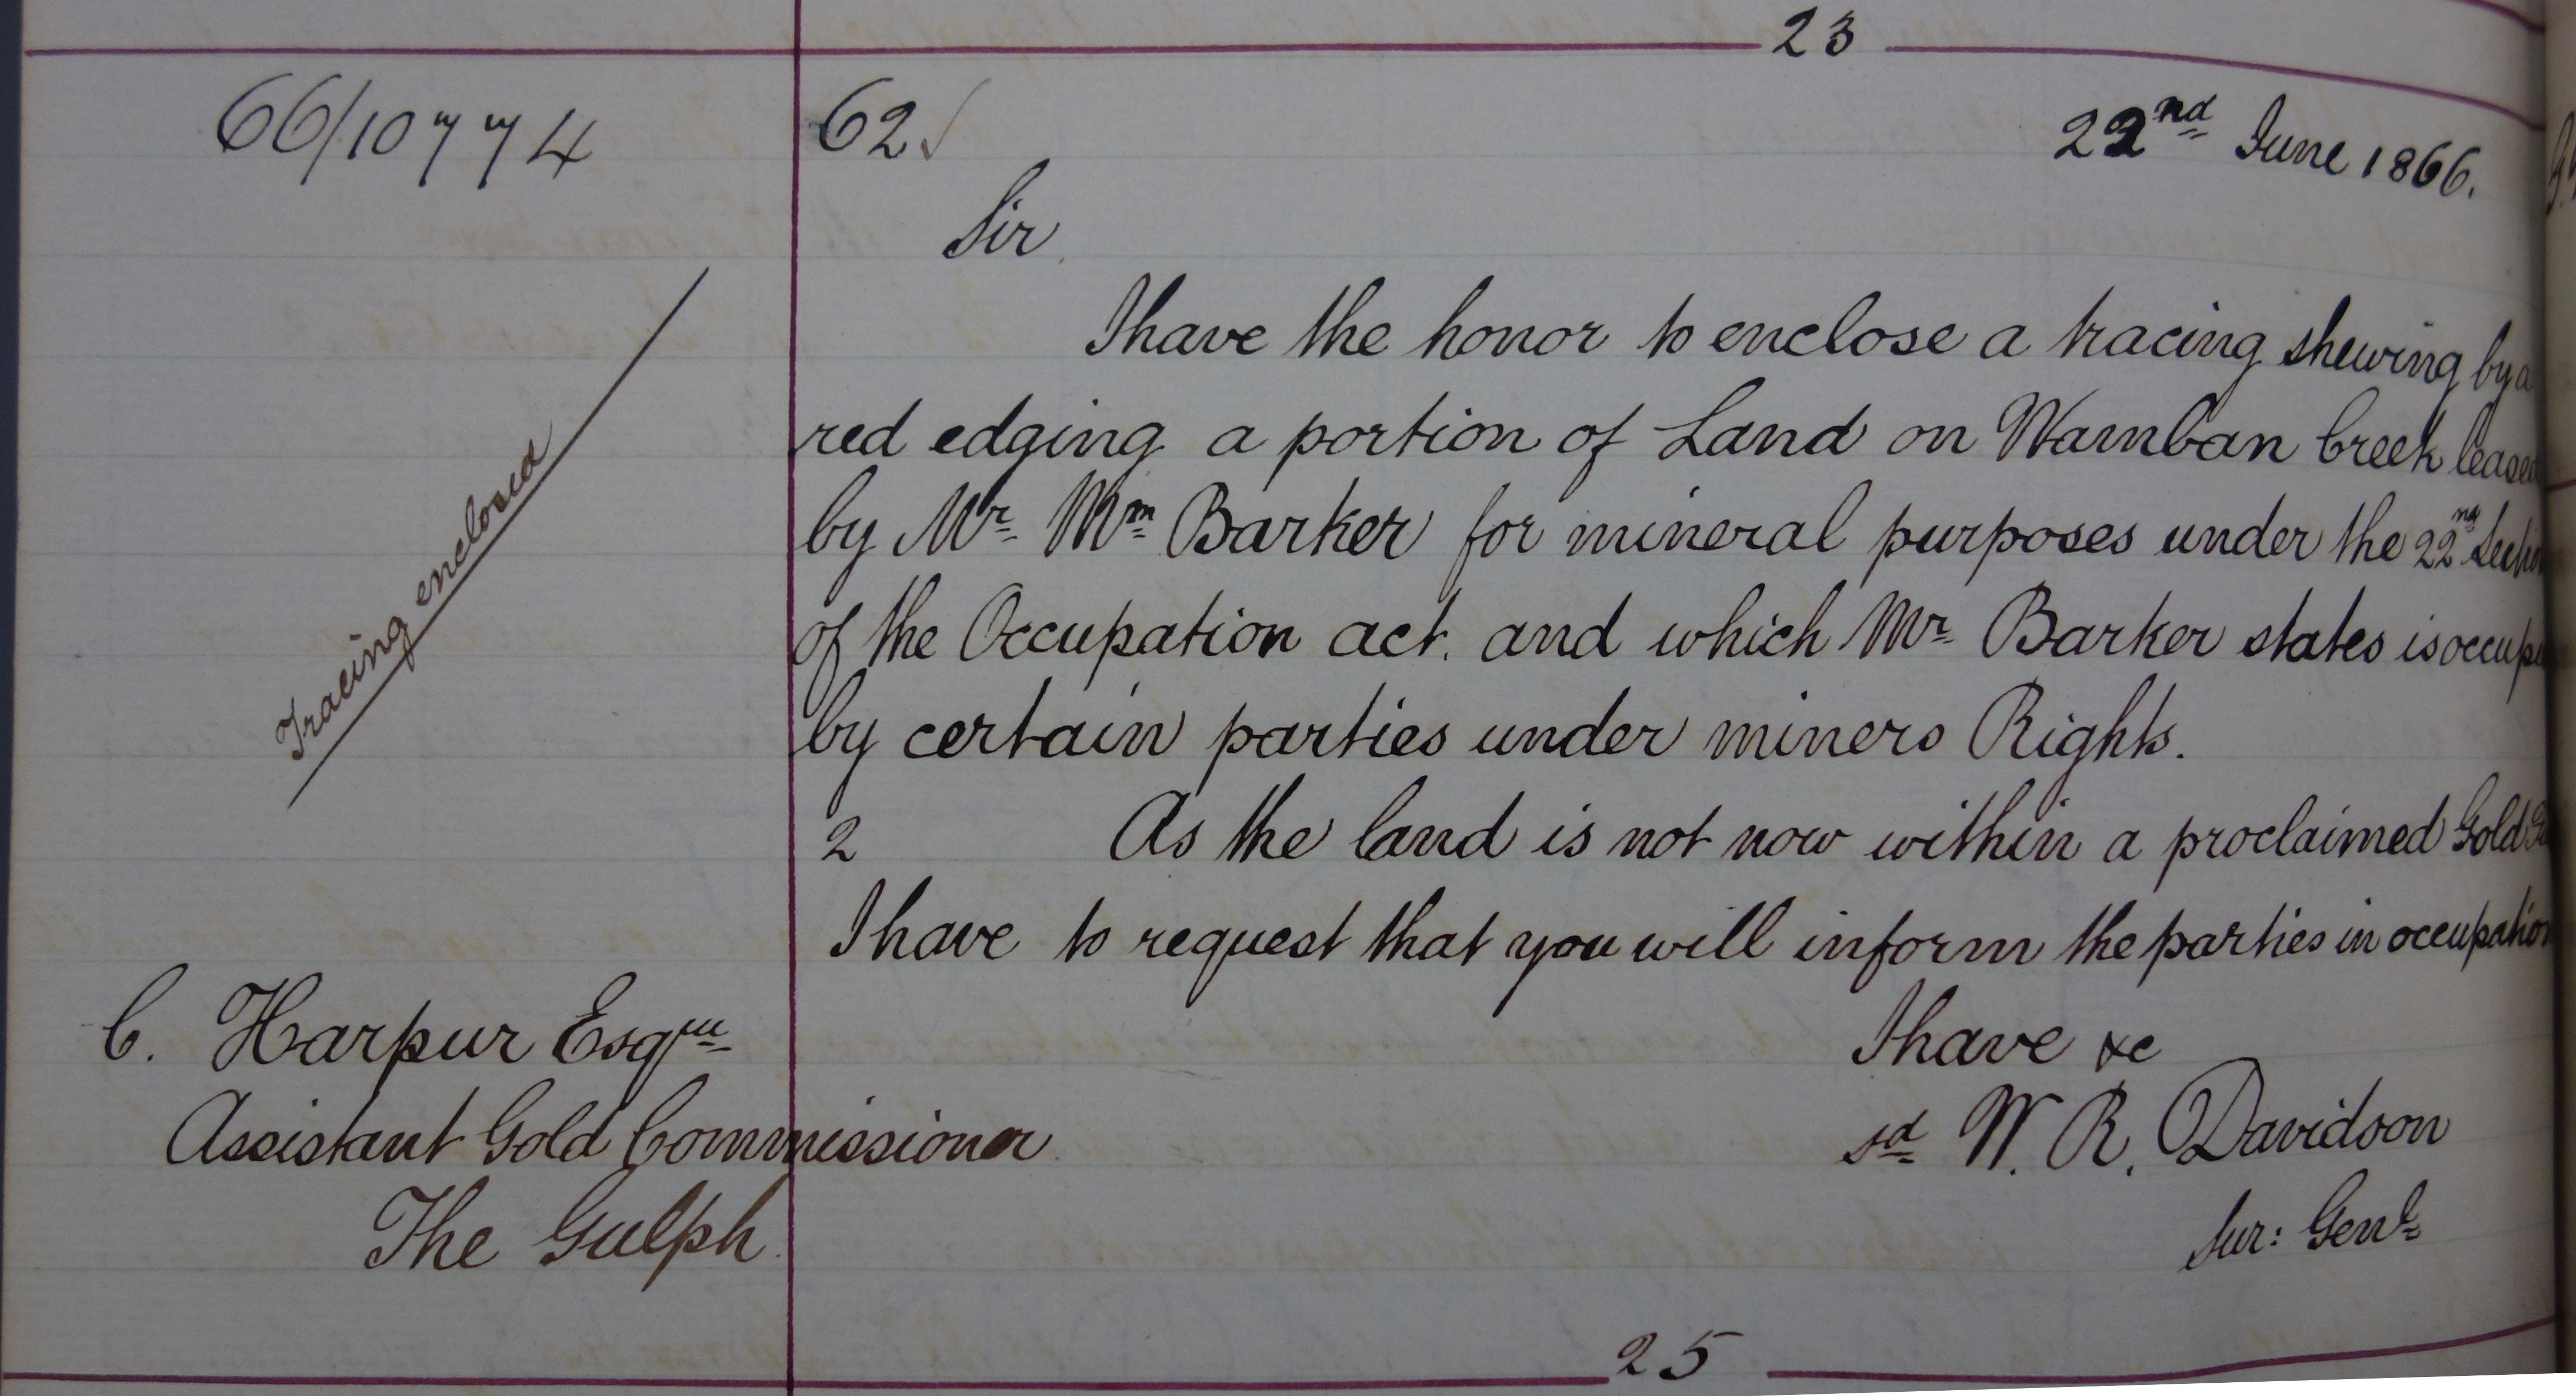 23
66/10774
62
22nd June 1866.
Sir
I have the honor to enclose a tracing shewing by a
red edging a portion of Land on Wamban Creek leased
by Mr. Wm Barker for mineral purposes under the 22nd Sectio
of the Occupation act. and which Mr Barker states is occup
by certain parties under miners Rights.
Tracing enclosed
2 As the land is not now within a proclaimed Gold
I have to request that you will inform the parties in occupation
I have &c
sd W. R. Davidson
Sur: Genl
C. Harpur Esqre
Assistant Gold Commissioner
The Gulph
25